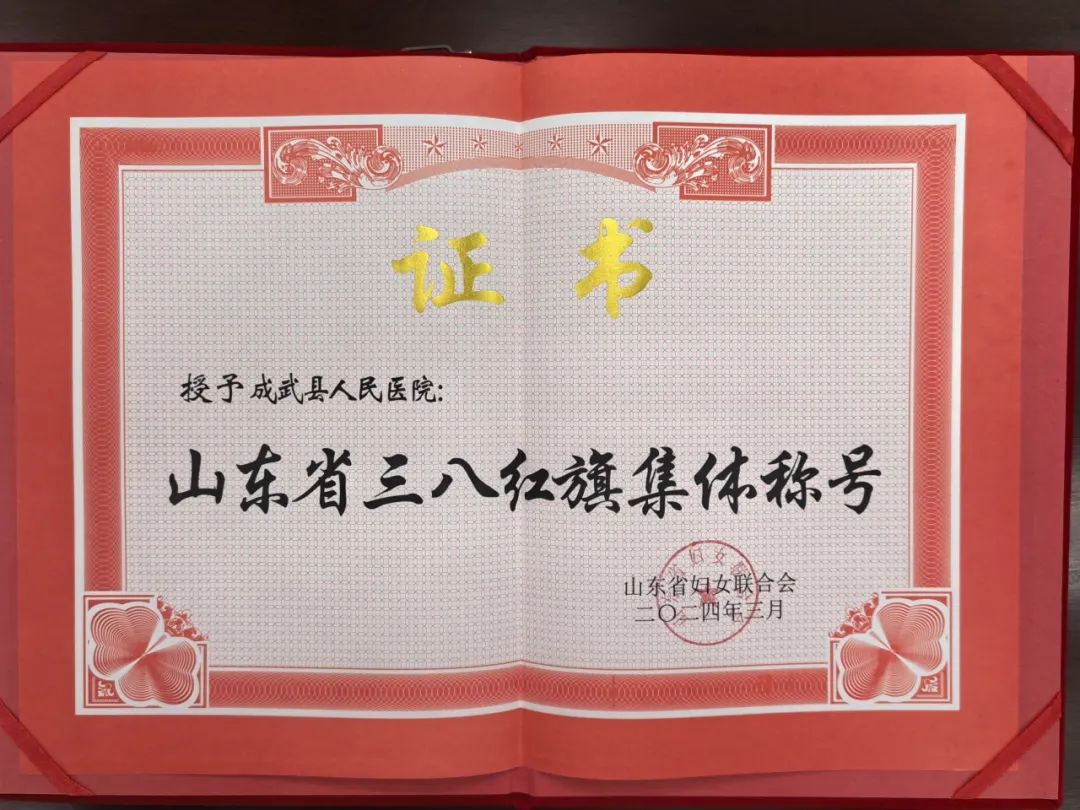 证 书
授予成武县人民医院:
山东省三八红旗集体称号
山东省妇女联合会
二〇二四年三月